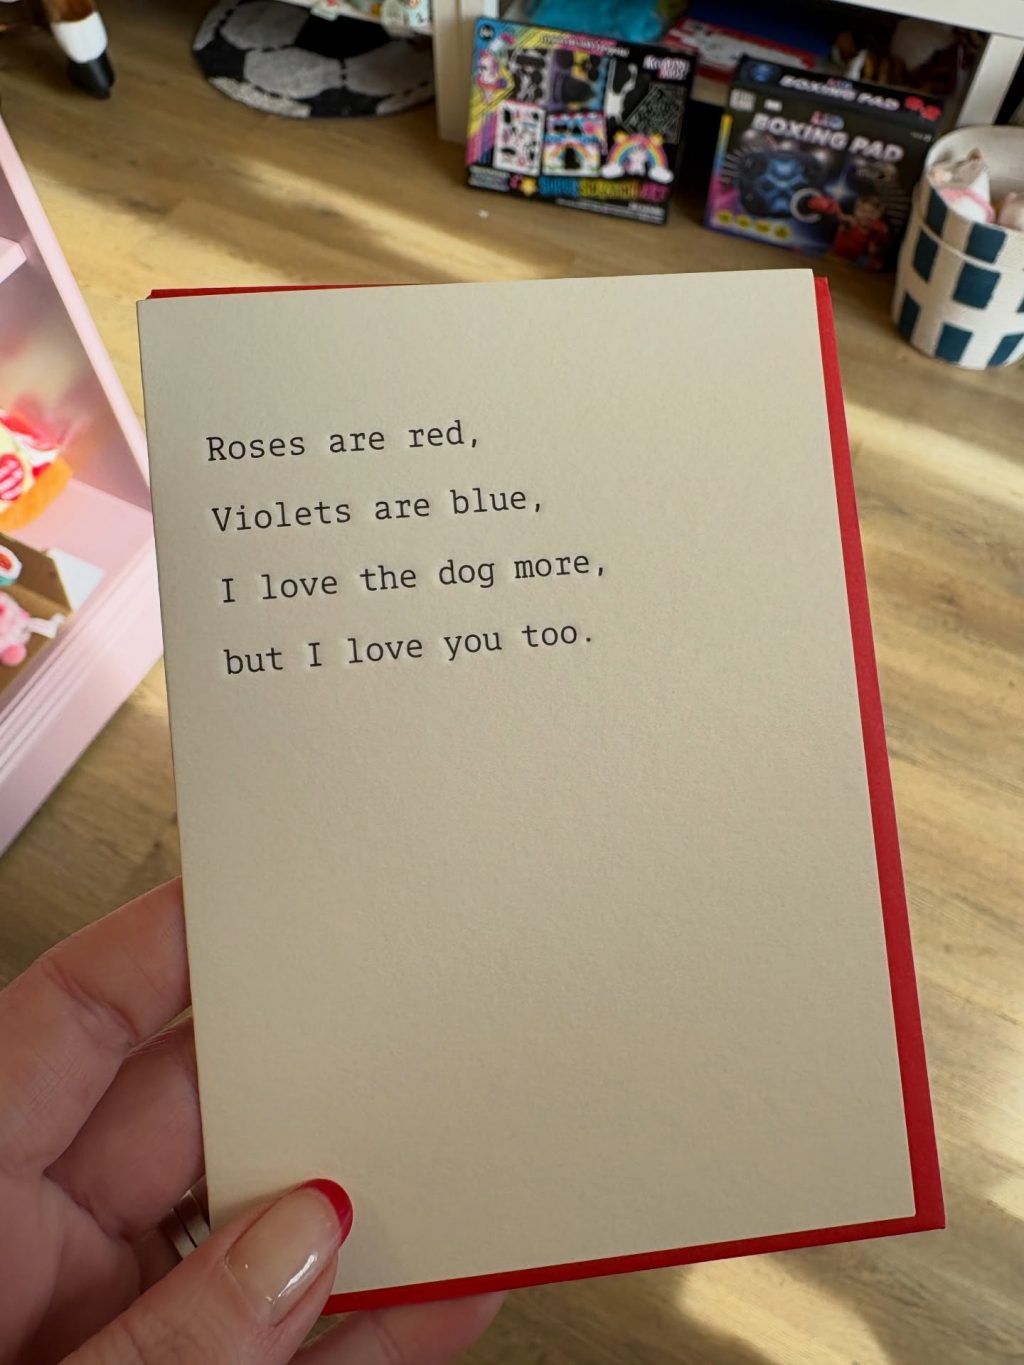 BOXING PAD
LED
BOXING PAD
Roses are red,
Violets are blue,
I love the dog more,
but I love you too.